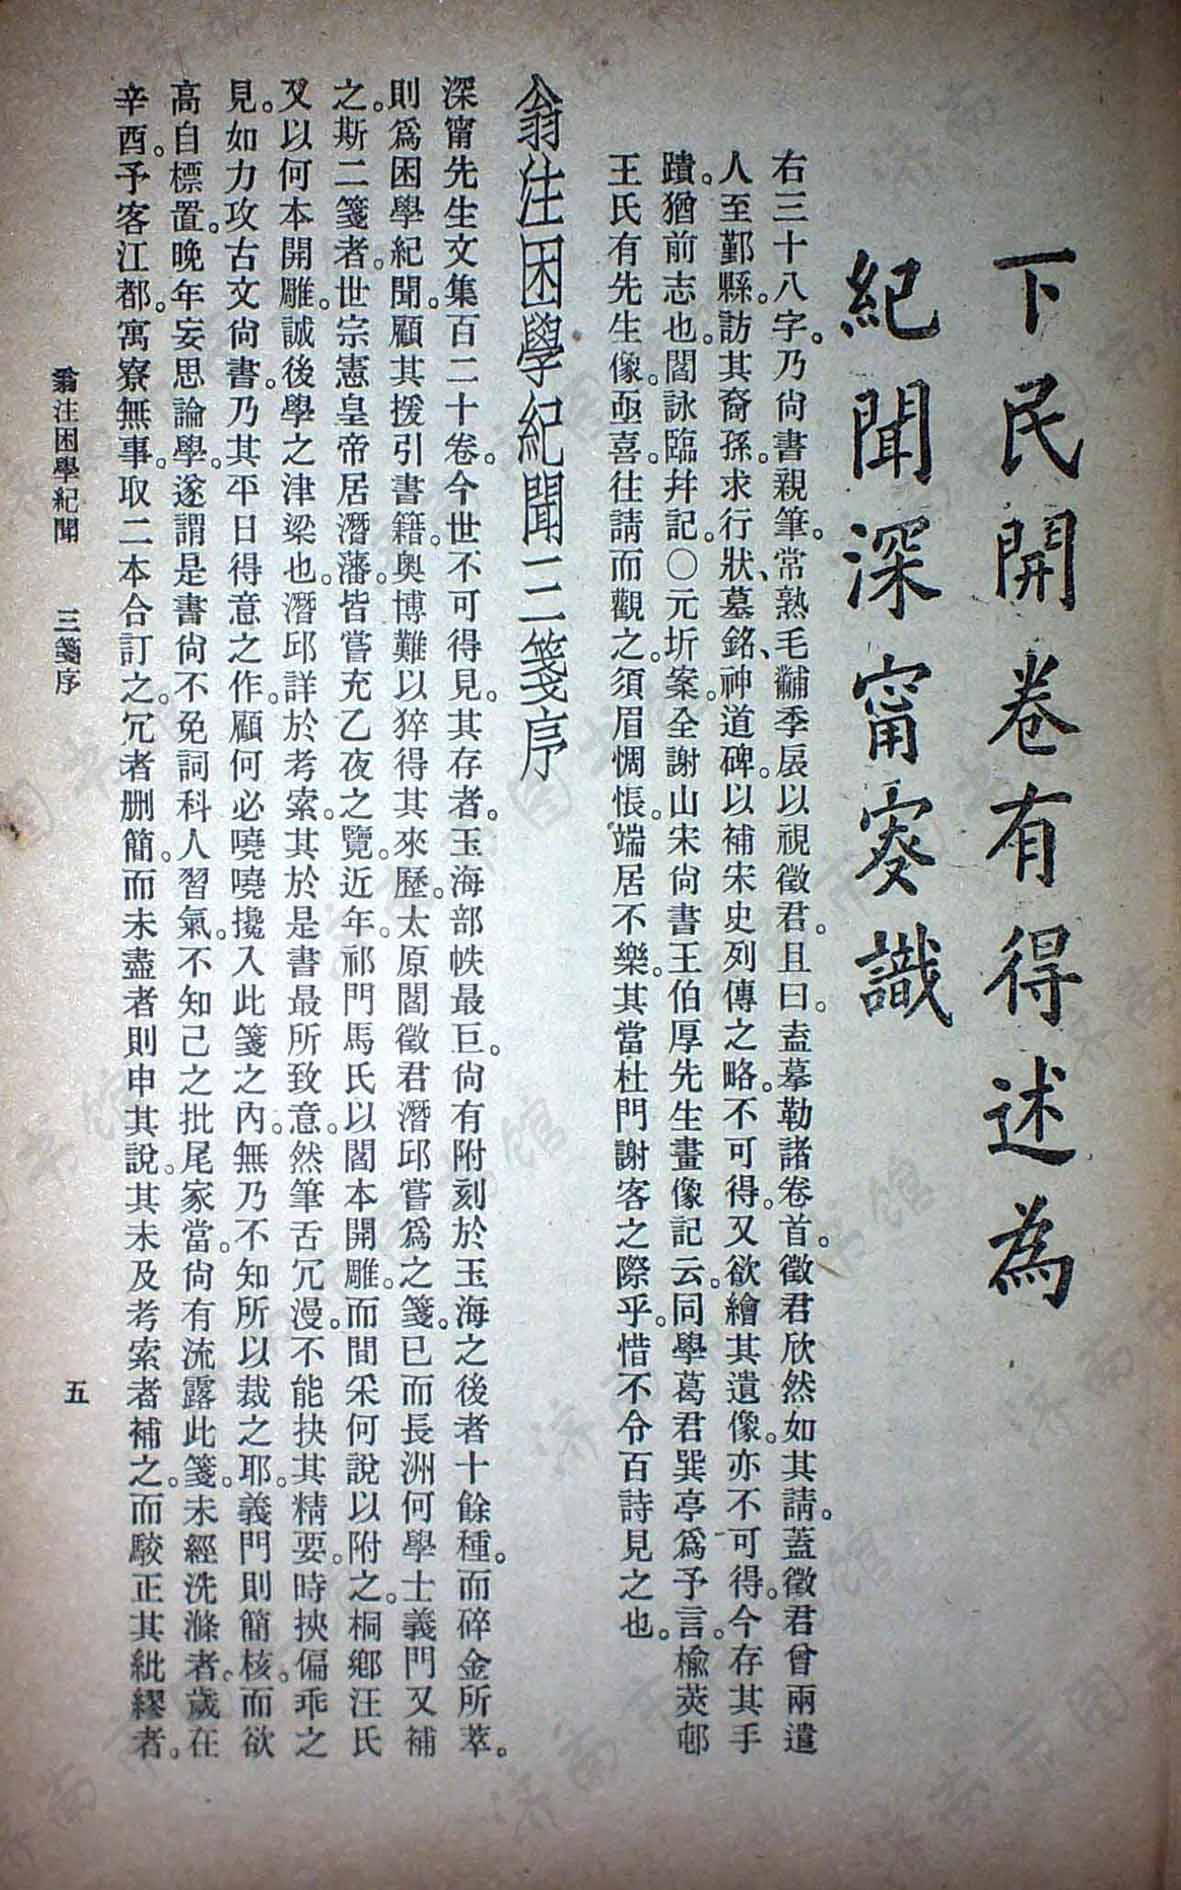 下民開卷有得述為
紀聞深甯叜識
右三十八字。乃尚書親筆。常熟毛黼季扆以視徵君。且曰。盍摹勒諸卷首。徵君欣然如其請。蓋徵君曾兩遣
人至鄞縣。訪其裔孫。求行狀、墓銘、神道碑。以補宋史列傳之略。不可得。又欲繪其遺像。亦不可得。今存其手
蹟。猶前志也。閻詠臨幷記。○元圻案。全謝山宋尚書王伯厚先生畫像記云。同學葛君巽亭爲予言。楡莢邨
王氏有先生像。亟喜。往請而觀之。須眉惆悵。端居不樂。其當杜門謝客之際乎。惜不令百詩見之也。
翁注困學紀聞三箋序
深甯先生文集百二十卷。今世不可得見。其存者。玉海部帙最巨。尚有附刻於玉海之後者十餘種。而碎金所萃。
則爲困學紀聞。顧其援引書籍。奧博難以猝得其來歷。太原閻徵君潛邱嘗爲之箋。已而長洲何學士義門又補
之。斯二箋者。世宗憲皇帝居潛藩。皆嘗充乙夜之覽。近年。祁門馬氏以閻本開雕。而間采何說以附之。桐鄉汪氏
又以何本開雕。誠後學之津梁也。潛邱詳於考索。其於是書最所致意。然筆舌冗漫。不能抉其精要。時挾偏乖之
見。如力攻古文尚書。乃其平日得意之作。顧何必嘵嘵攙入此箋之內。無乃不知所以裁之耶。義門則簡核。而欲
高自標置。晚年妄思論學。遂謂是書尚不免詞科人習氣。不知己之批尾家當。尚有流露此箋。未經洗滌者。歲在
辛酉。予客江都。寓寮無事。取二本合訂之。冗者刪簡。而未盡者則申其說。其未及考索者補之。而駮正其紕繆者。
翁注困學紀聞 三箋序 五